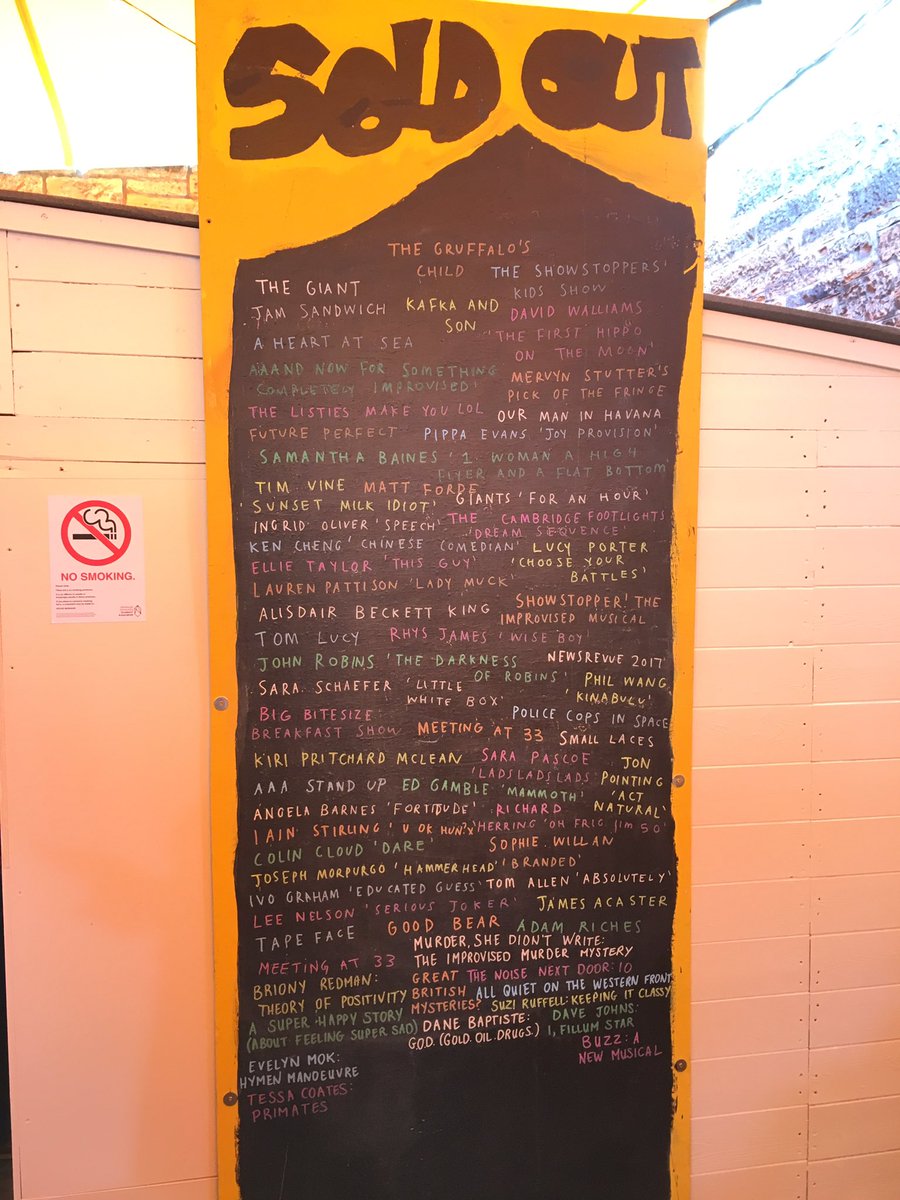 SOLD OUT
THE GRUFFALO'S
CHILD
THE SHOWSTOPPERS'
KIDS SHOW
THE GIANT
JAM SANDWICH
KAFKA AND
SON
DAVID WALLIAMS
'THE FIRST HIPPO
ON THE MOON'
A HEART AT SEA
AAAND NOW FOR SOMETHING
COMPLETELY IMPROVISED!
MERVYN STUTTER'S
PICK OF THE FRINGE
THE LISTIES MAKE YOU LOL
OUR MAN IN HAVANA
FUTURE PERFECT
PIPPA EVANS 'JOY PROVISION'
SAMANTHA BAINES '1 WOMAN A HIGH
FLYER AND A FLAT BOTTOM
TIM VINE
'SUNSET MILK IDIOT'
MATT FORDE
GIANTS 'FOR AN HOUR'
INGRID OLIVER 'SPEECH'
THE CAMBRIDGE FOOTLIGHTS
'DREAM SEQUENCE'
KEN CHENG 'CHINESE COMEDIAN'
LUCY PORTER
'CHOOSE YOUR
BATTLES'
ELLIE TAYLOR 'THIS GUY'
LAUREN PATTISON 'LADY MUCK'
ALISDAIR BECKETT KING
SHOWSTOPPER! THE
IMPROVISED MUSICAL
TOM LUCY
RHYS JAMES 'WISE BOY'
JOHN ROBINS 'THE DARKNESS
OF ROBINS'
NEWSREVUE 2017
SARA SCHAEFER 'LITTLE
WHITE BOX'
PHIL WANG
'KINABULU'
BIG BITESIZE
BREAKFAST SHOW
POLICE COPS IN SPACE
MEETING AT 33
SMALL LACES
KIRI PRITCHARD MCLEAN
SARA PASCOE
'LADS LADS LADS'
JON
POINTING
'ACT
NATURAL'
AAA STAND UP
ED GAMBLE 'MAMMOTH'
ANGELA BARNES 'FORTITUDE'
RICHARD
HERRING 'OH FRIG I'M 50'
IAIN STIRLING 'U OK HUN?X'
COLIN CLOUD 'DARE'
SOPHIE WILLAN
'BRANDED'
JOSEPH MORPURGO 'HAMMERHEAD'
IVO GRAHAM 'EDUCATED GUESS'
TOM ALLEN 'ABSOLUTELY'
LEE NELSON 'SERIOUS JOKER'
JAMES ACASTER
TAPE FACE
GOOD BEAR
ADAM RICHES
MURDER, SHE DIDN'T WRITE:
THE IMPROVISED MURDER MYSTERY
MEETING AT 33
BRIONY REDMAN:
THEORY OF POSITIVITY
GREAT
BRITISH
MYSTERIES?
THE NOISE NEXT DOOR: 10
ALL QUIET ON THE WESTERN FRONT
SUZI RUFFELL: KEEPING IT CLASSY
A SUPER HAPPY STORY
(ABOUT FEELING SUPER SAD)
DANE BAPTISTE:
G.O.D. (GOLD. OIL. DRUGS.)
DAVE JOHNS:
I, FILLUM STAR
EVELYN MOK:
HYMEN MANOEUVRE
BUZZ: A
NEW MUSICAL
TESSA COATES:
PRIMATES
NO SMOKING.